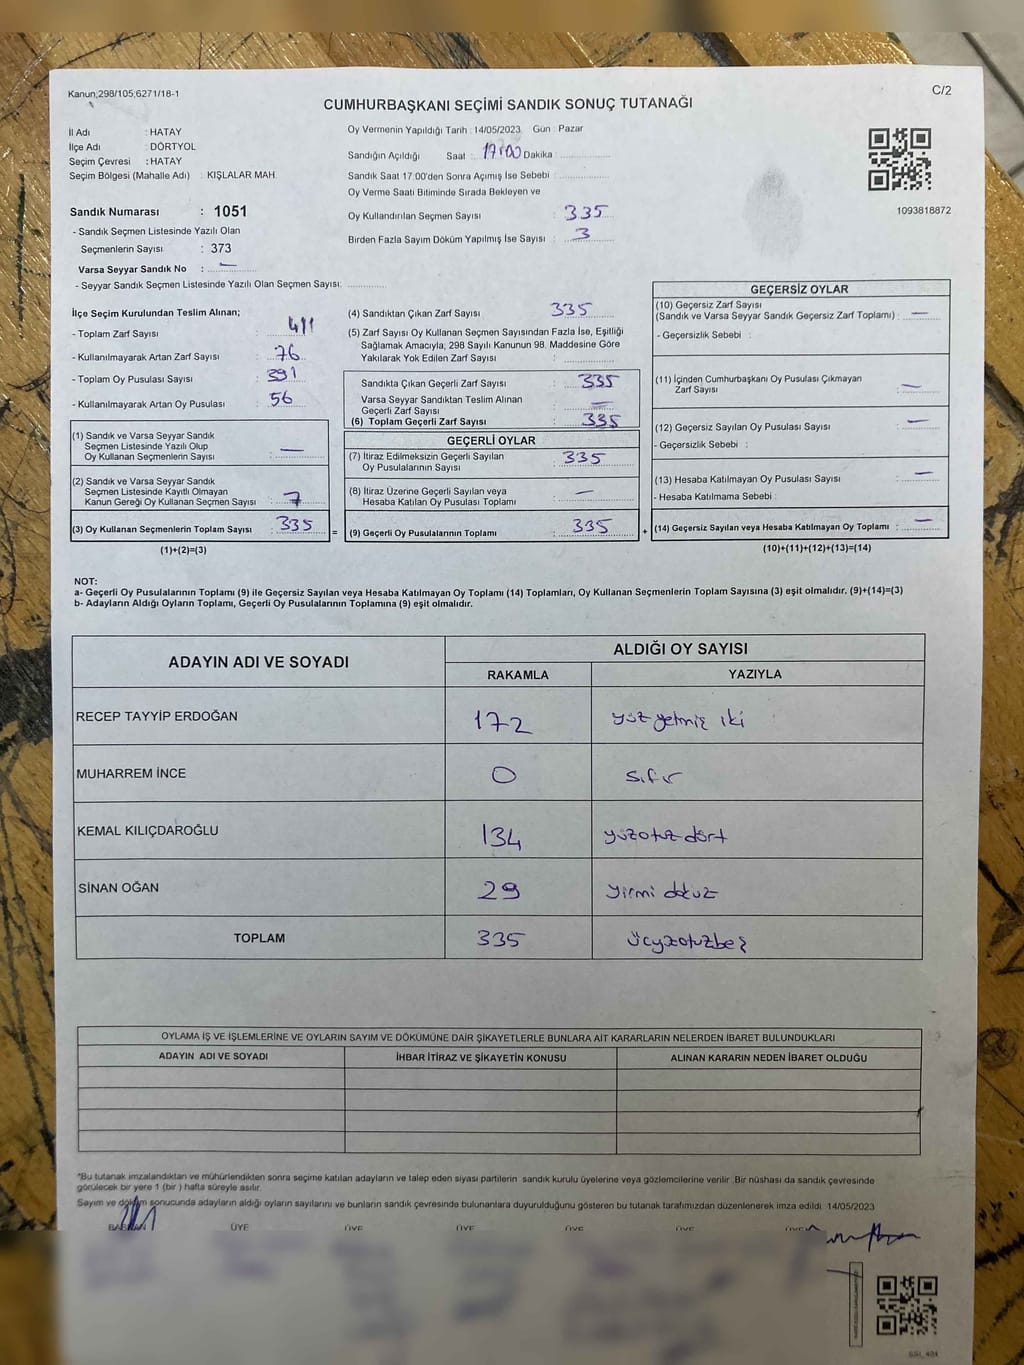 Kanun;298/105;6271/18-1
C/2
CUMHURBAŞKANI SEÇİMİ SANDIK SONUÇ TUTANAĞI
İl Adı : HATAY
İlçe Adı : DÖRTYOL
Seçim Çevresi : HATAY
Seçim Bölgesi (Mahalle Adı) : KIŞLALAR MAH.
Sandık Numarası : 1051
- Sandık Seçmen Listesinde Yazılı Olan
Seçmenlerin Sayısı : 373
Varsa Seyyar Sandık No : —
- Seyyar Sandık Seçmen Listesinde Yazılı Olan Seçmen Sayısı: ............
Oy Vermenin Yapıldığı Tarih : 14/05/2023 Gün : Pazar
Sandığın Açıldığı Saat : 17:00 Dakika : ............
Sandık Saat 17.00'den Sonra Açımış İse Sebebi : ............
Oy Verme Saati Bitiminde Sırada Bekleyen ve
Oy Kullandırılan Seçmen Sayısı : 335
Birden Fazla Sayım Döküm Yapılmış İse Sayısı : 3
1093818872
İlçe Seçim Kurulundan Teslim Alınan;
- Toplam Zarf Sayısı : 411
- Kullanılmayarak Artan Zarf Sayısı : 76
- Toplam Oy Pusulası Sayısı : 391
- Kullanılmayarak Artan Oy Pusulası : 56
(1) Sandık ve Varsa Seyyar Sandık
Seçmen Listesinde Yazılı Olup
Oy Kullanan Seçmenlerin Sayısı : —
(2) Sandık ve Varsa Seyyar Sandık
Seçmen Listesinde Kayıtlı Olmayan
Kanun Gereği Oy Kullanan Seçmen Sayısı : 7
(3) Oy Kullanan Seçmenlerin Toplam Sayısı : 335
(1)+(2)=(3)
(4) Sandıktan Çıkan Zarf Sayısı : 335
(5) Zarf Sayısı Oy Kullanan Seçmen Sayısından Fazla İse, Eşitliği
Sağlamak Amacıyla; 298 Sayılı Kanunun 98. Maddesine Göre
Yakılarak Yok Edilen Zarf Sayısı : ............
Sandıkta Çıkan Geçerli Zarf Sayısı : 335
Varsa Seyyar Sandıktan Teslim Alınan
Geçerli Zarf Sayısı : —
(6) Toplam Geçerli Zarf Sayısı : 335
GEÇERLİ OYLAR
(7) İtiraz Edilmeksizin Geçerli Sayılan
Oy Pusulalarının Sayısı : 335
(8) İtiraz Üzerine Geçerli Sayılan veya
Hesaba Katılan Oy Pusulası Toplamı : —
= (9) Geçerli Oy Pusulalarının Toplamı : 335 +
GEÇERSİZ OYLAR
(10) Geçersiz Zarf Sayısı
(Sandık ve Varsa Seyyar Sandık Geçersiz Zarf Toplamı) : —
- Geçersizlik Sebebi :
(11) İçinden Cumhurbaşkanı Oy Pusulası Çıkmayan
Zarf Sayısı : —
(12) Geçersiz Sayılan Oy Pusulası Sayısı : —
- Geçersizlik Sebebi :
(13) Hesaba Katılmayan Oy Pusulası Sayısı : —
- Hesaba Katılmama Sebebi :
(14) Geçersiz Sayılan veya Hesaba Katılmayan Oy Toplamı : —
(10)+(11)+(12)+(13)=(14)
NOT:
a- Geçerli Oy Pusulalarının Toplamı (9) ile Geçersiz Sayılan veya Hesaba Katılmayan Oy Toplamı (14) Toplamları, Oy Kullanan Seçmenlerin Toplam Sayısına (3) eşit olmalıdır. (9)+(14)=(3)
b- Adayların Aldığı Oyların Toplamı, Geçerli Oy Pusulalarının Toplamına (9) eşit olmalıdır.
ADAYIN ADI VE SOYADI ALDIĞI OY SAYISI
RAKAMLA YAZIYLA
RECEP TAYYİP ERDOĞAN 172 yüz yetmiş iki
MUHARREM İNCE 0 sıfır
KEMAL KILIÇDAROĞLU 134 yüzotuz dört
SİNAN OĞAN 29 yirmi dokuz
TOPLAM 335 üçyüzotuzbeş
OYLAMA İŞ VE İŞLEMLERİNE VE OYLARIN SAYIM VE DÖKÜMÜNE DAİR ŞİKAYETLERLE BUNLARA AİT KARARLARIN NELERDEN İBARET BULUNDUKLARI
ADAYIN ADI VE SOYADI İHBAR İTİRAZ VE ŞİKAYETİN KONUSU ALINAN KARARIN NEDEN İBARET OLDUĞU
*Bu tutanak imzalandıktan ve mühürlendikten sonra seçime katılan adayların ve talep eden siyasi partilerin sandık kurulu üyelerine veya gözlemcilerine verilir. Bir nüshası da sandık çevresinde
görülecek bir yere 1 (bir ) hafta süreyle asılır.
Sayım ve döküm sonucunda adayların aldığı oyların sayılarını ve bunların sandık çevresinde bulunanlara duyurulduğunu gösteren bu tutanak tarafımızdan düzenlenerek imza edildi. 14/05/2023
BAŞKAN ÜYE ÜYE ÜYE ÜYE ÜYE ÜYE